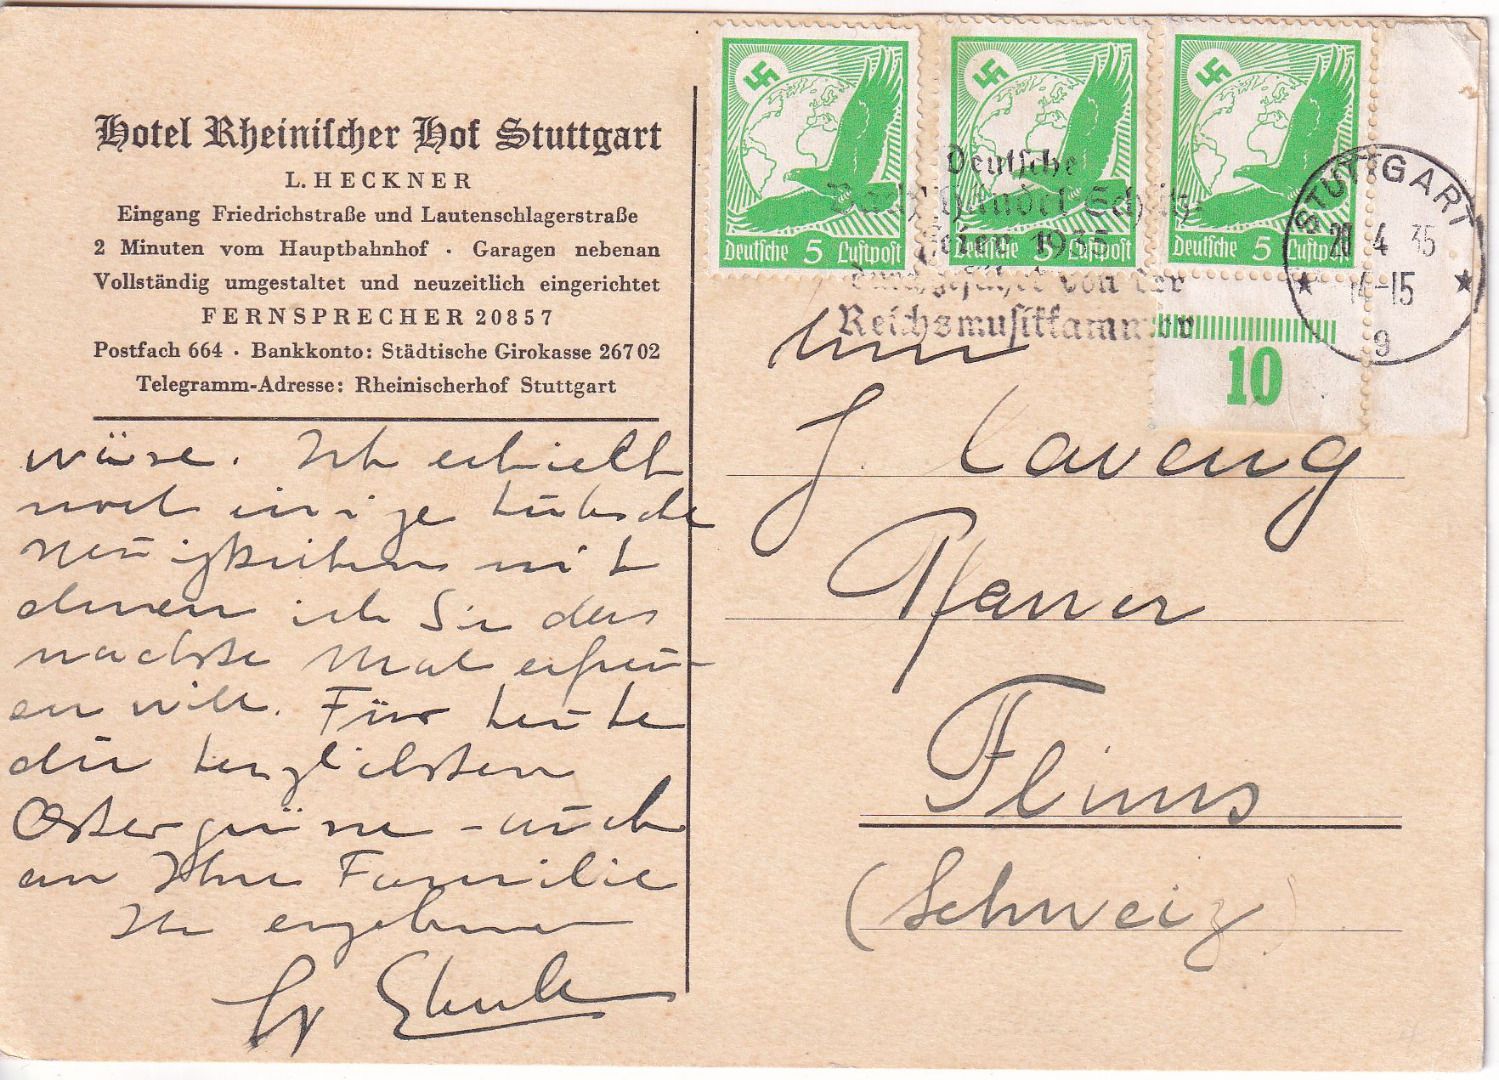 Hotel Rheinischer Hof Stuttgart
L. HECKNER
Eingang Friedrichstraße und Lautenschlagerstraße
2 Minuten vom Hauptbahnhof · Garagen nebenan
Vollständig umgestaltet und neuzeitlich eingerichtet
FERNSPRECHER 20857
Postfach 664 · Bankkonto: Städtische Girokasse 26702
Telegramm-Adresse: Rheinischerhof Stuttgart
wäre. Ich erhielt
noch einige hübsche
Neuigkeiten mit
denen ich Sie das
nächste Mal erfreu-
en will. Für heute
die herzlichsten
Ostergrüsse - auch
an Ihre Familie
Ihr ergebener
Deutsche 5 Luftpost
Deutsche 5 Luftpost
Deutsche 5 Luftpost
Deutsche
Bach Händel Schütz
Feier 1935
durchgeführt von der
Reichsmusikkammer
STUTTGART
20 4 35
14-15
9
10
Herrn
J. Caveng
Pfarrer
Flims
(Schweiz)